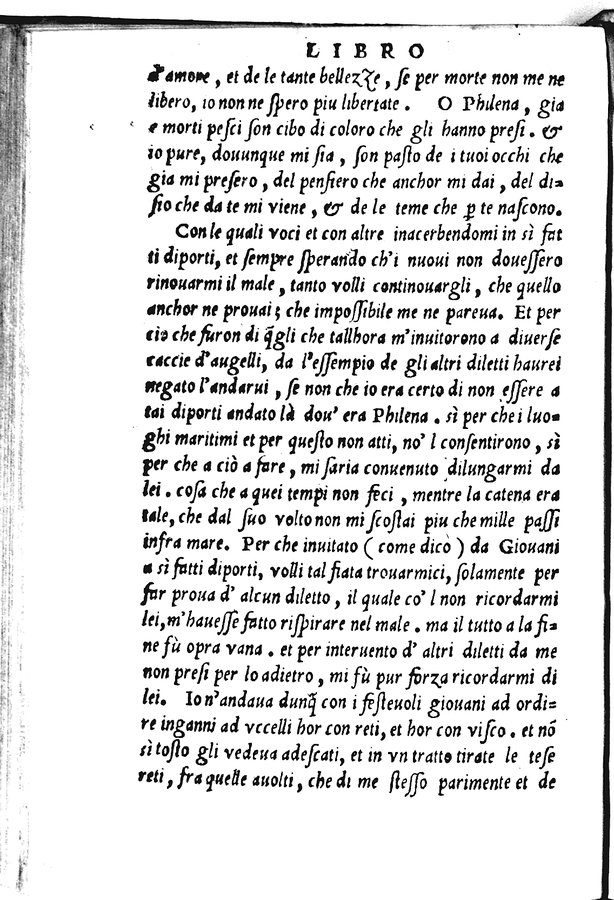 LIBRO
d'amore, et de le tante bellezze, ſe per morte non me ne
libero, io non ne ſpero piu libertate. O Philena, gia
e morti peſci ſon cibo di coloro che gli hanno preſi. &
io pure, douunque mi ſia, ſon paſto de i tuoi occhi che
gia mi preſero, del penſiero che anchor mi dai, del di=
ſio che da te mi viene, & de le teme che ꝑ te naſcono.
Con le quali voci et con altre inacerbendomi in sì fat
ti diporti, et ſempre ſperando ch'i nuoui non doueſſero
rinouarmi il male, tanto volli continouargli, che quello
anchor ne prouai; che impoſſibile me ne pareua. Et per
cio che furon di q̃gli che tallhora m'inuitorono a diuerſe
caccie d'augelli, da l'eſſempio de gli altri diletti haurei
negato l'andarui, ſe non che io era certo di non eſſere a
tai diporti andato là dou' era Philena. sì per che i luo=
ghi maritimi et per queſto non atti, no' l conſentirono, sì
per che a ciò a fare, mi ſaria conuenuto dilungarmi da
lei. coſa che a quei tempi non feci, mentre la catena era
tale, che dal ſuo volto non mi ſcoſtai piu che mille paſſi
infra mare. Per che inuitato (come dico) da Giouani
a sì fatti diporti, volli tal fiata trouarmici, ſolamente per
far proua d' alcun diletto, il quale co' l non ricordarmi
lei, m'haueſſe fatto riſpirare nel male. ma il tutto a la fi=
ne fù opra vana. et per interuento d' altri diletti da me
non preſi per lo adietro, mi fù pur forza ricordarmi di
lei. Io n'andaua dunq̃ con i feſteuoli giouani ad ordi=
re inganni ad vccelli hor con reti, et hor con viſco. et nõ
sì toſto gli vedeua adeſcati, et in vn tratto tirate le teſe
reti, fra quelle auolti, che di me ſteſſo parimente et de